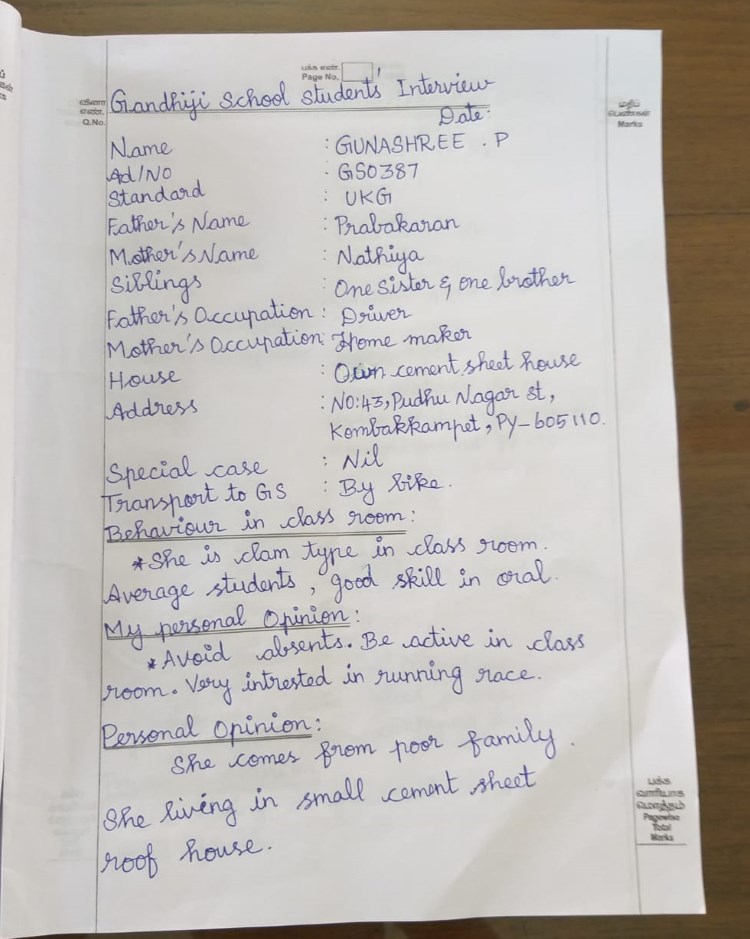 பக்க எண்.
Page No.
Gandhiji School Students' Interview
வினா
எண்.
Q.No.
மதிப்
பெண்கள்
Marks
Date:
Name : GUNASHREE . P
Ad/NO - GS0387
Standard : UKG
Father's Name : Prabakaran
Mother's Name : Nathiya
Siblings : One Sister & one brother
Father's Occupation : Driver
Mother's Occupation: Home maker
House : Own cement sheet house
Address : NO:43, Pudhu Nagar st,
Kombakkampet, PY-605110.
Special case : Nil
Transport to GS : By bike.
Behaviour in class room:
*She is clam type in class room.
Average students, good skill in oral.
My personal Opinion:
*Avoid absents. Be active in class
room. Very intrested in running race.
Personal Opinion:
She comes from poor family.
She living in small cement sheet
roof house.
பக்க
வாரியாக
மொத்தம்
Pagewise
Total
Marks